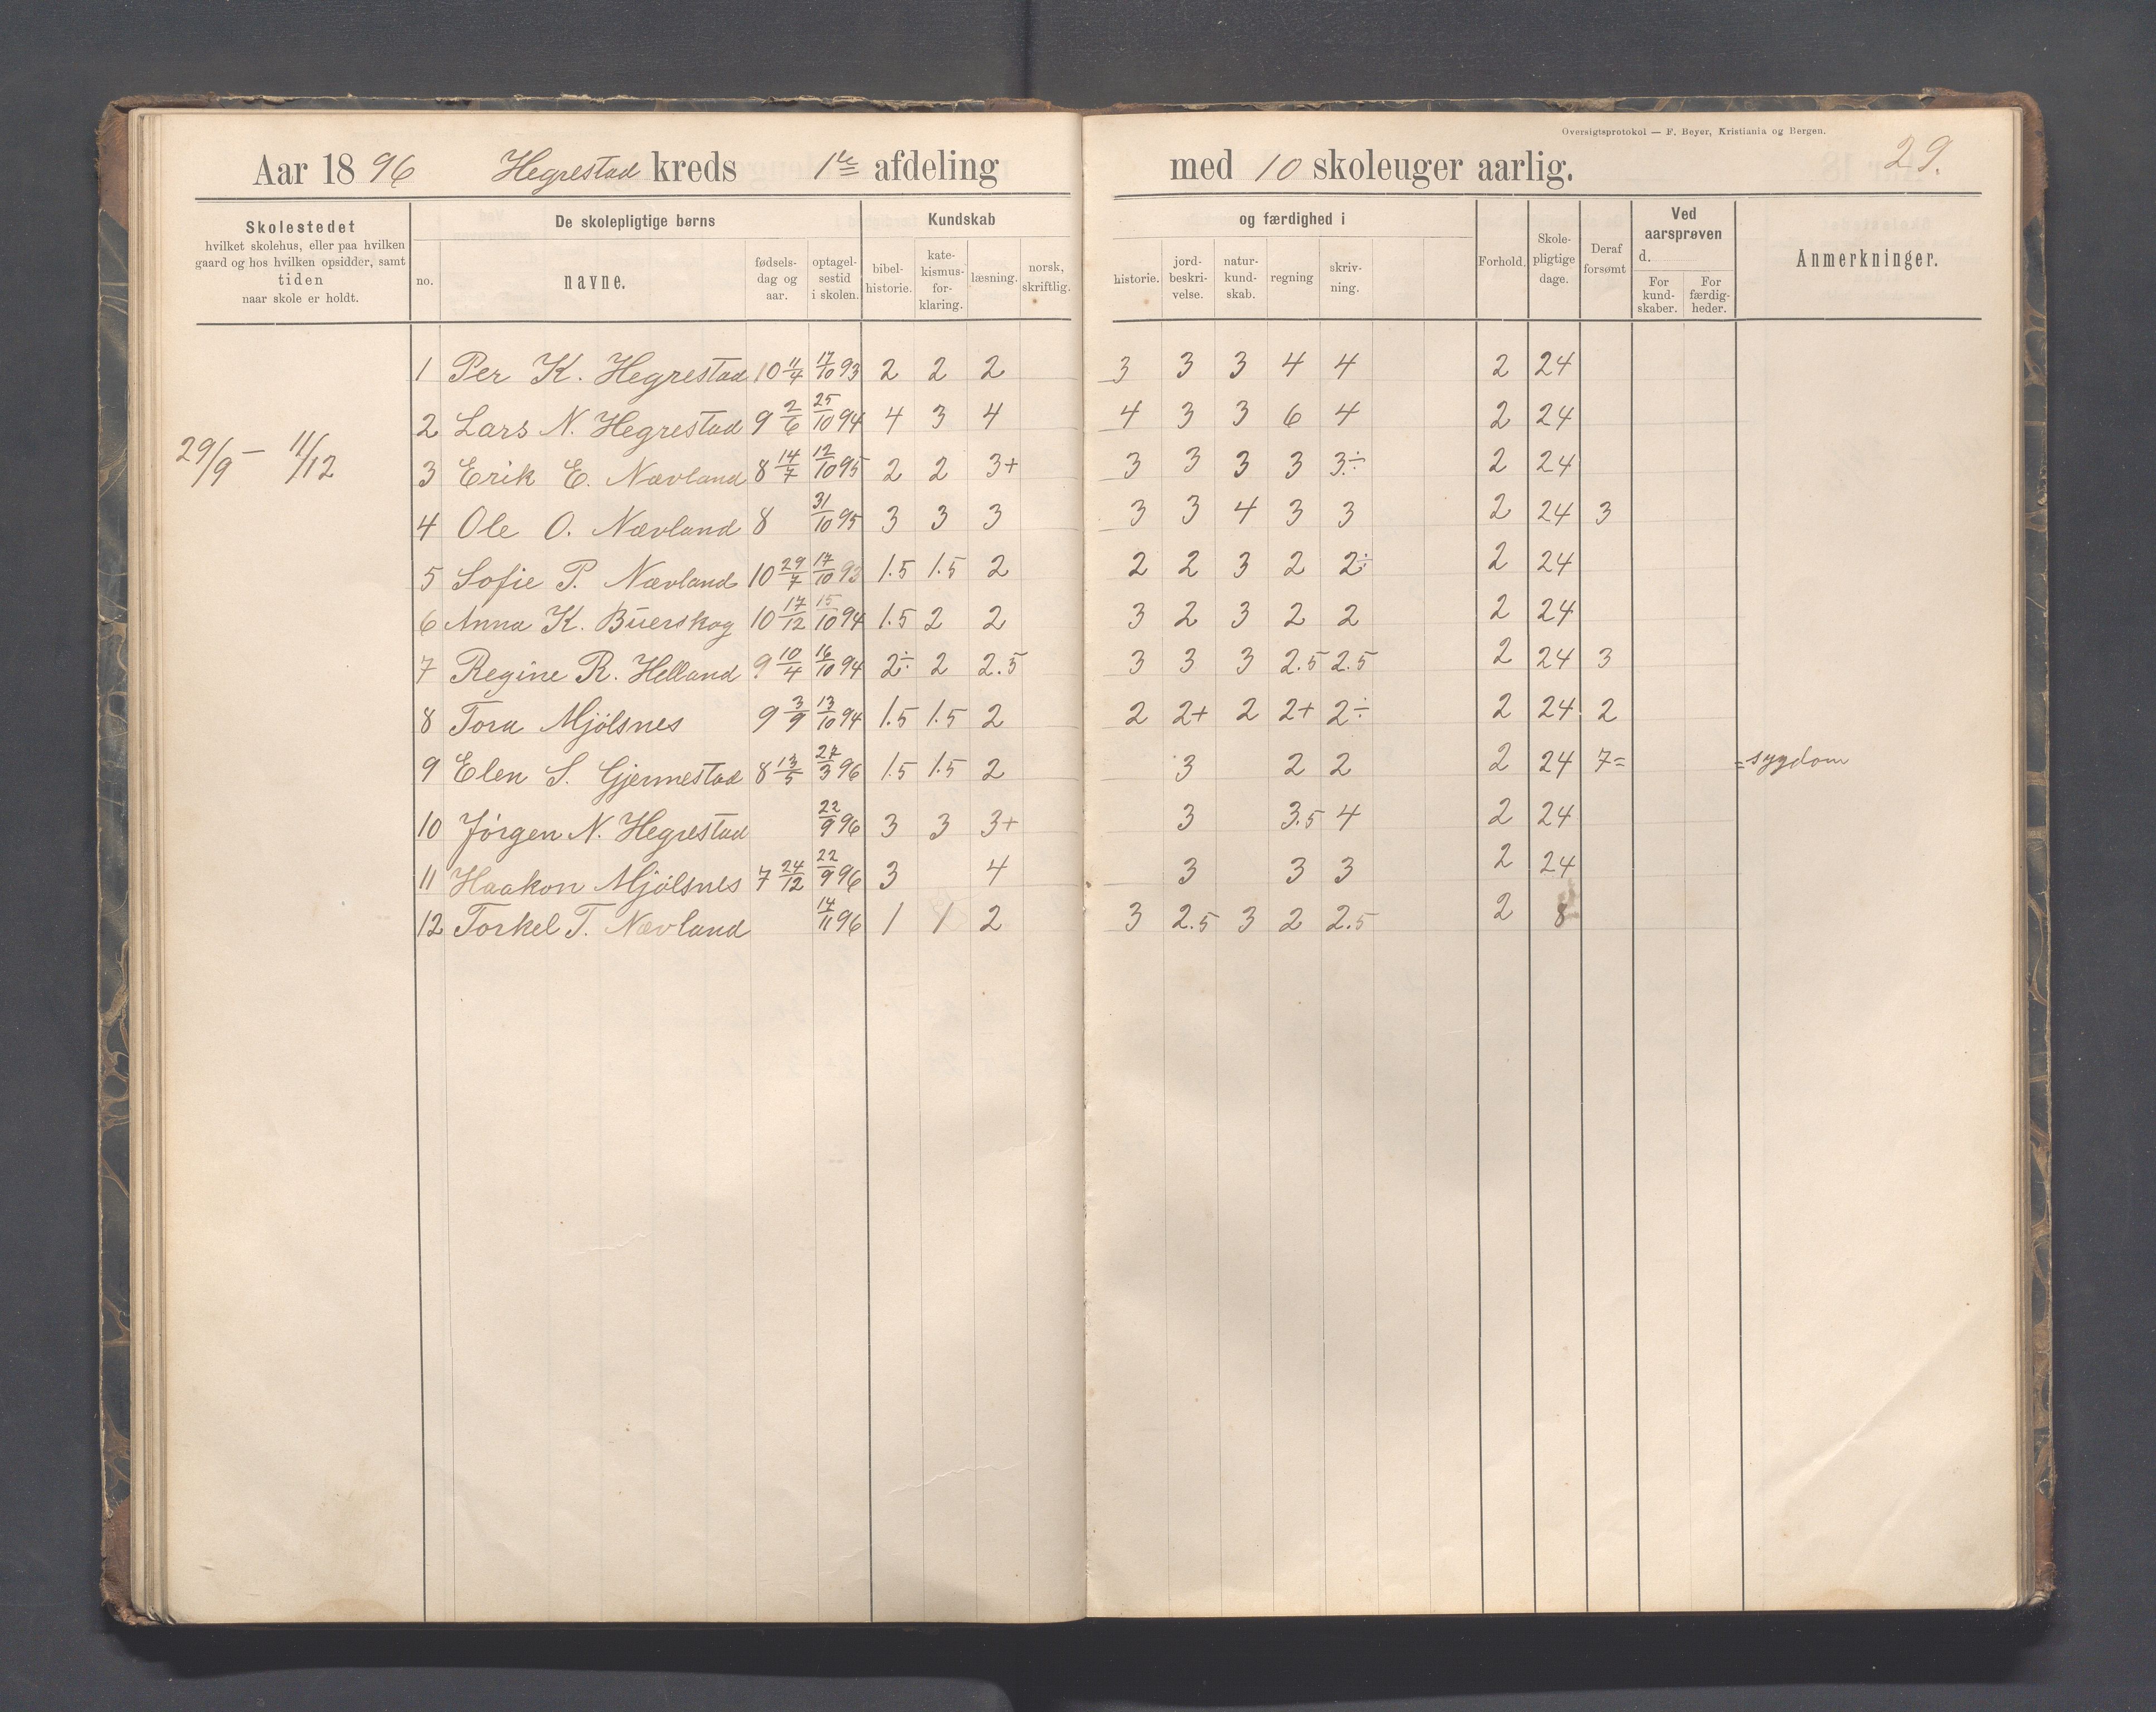 Oversigtsprotokol — F. Beyer, Kristiania og Bergen.
29.
Aar 1896 Hegrestad kreds 1ste afdeling med 10 skoleuger aarlig.
Skolestedet hvilket skolehus, eller paa hvilken gaard og hos hvilken opsidder, samt tiden naar skole er holdt.
De skolepligtige børns
no.
navne.
fødsels-dag og aar.
optagel-sestid i skolen.
Kundskab og færdighed i
bibel-historie.
kate-kismus-for-klaring.
læsning.
norsk, skriftlig.
historie.
jord-beskri-velse.
natur-kund-skab.
regning
skriv-ning.
Forhold.
Skole-pligtige dage.
Deraf forsømt
Ved aarsprøven d.
For kund-skaber.
For færdig-heder.
Anmerkninger.
29/9 – 11/12
1 Per K. Hegrestad 10 11/4 17/10 93 2 2 2 3 3 3 4 4 2 24
2 Lars N. Hegrestad 9 2/6 25/10 94 4 3 4 4 3 3 6 4 2 24
3 Erik E. Nævland 8 14/7 12/10 95 2 2 3+ 3 3 3 3 3÷ 2 24
4 Ole O. Nævland 8 31/10 95 3 3 3 3 3 4 3 3 2 24 3
5 Sofie P. Nævland 10 29/7 17/10 93 1.5 1.5 2 2 2 3 2 2÷ 2 24
6 Anna K. Buerskog 10 17/12 15/10 94 1.5 2 2 3 2 3 2 2 2 24
7 Regine R. Helland 9 10/4 16/10 94 2÷ 2 2.5 3 3 3 2.5 2.5 2 24 3
8 Tora Mjølsnes 9 3/9 13/10 94 1.5 1.5 2 2 2+ 2 2+ 2÷ 2 24 2
9 Elen S. Gjermestad 8 13/5 27/3 96 1.5 1.5 2 3 2 2 2 24 7= =sygdom
10 Jørgen N. Hegrestad 22/9 96 3 3 3+ 3 3.5 4 2 24
11 Haakon Mjølsnes 7 24/12 22/9 96 3 4 3 3 3 2 24
12 Torkel T. Nævland 14/11 96 1 1 2 3 2.5 3 2 2.5 2 8